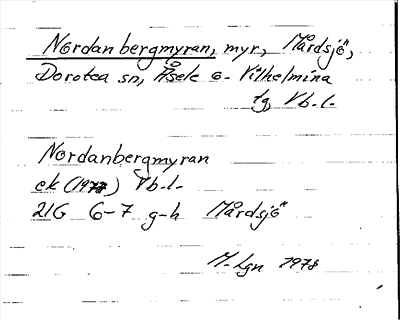 Nordanbergmyran, myr, Mårdsjö,
Dorotea sn, Åsele o. Vilhelmina
tg, Vb.l.
Nordanbergmyran
ek (1978) Vb.l.
21G 6-7 g-h Mårdsjö
M. Lgn 1978